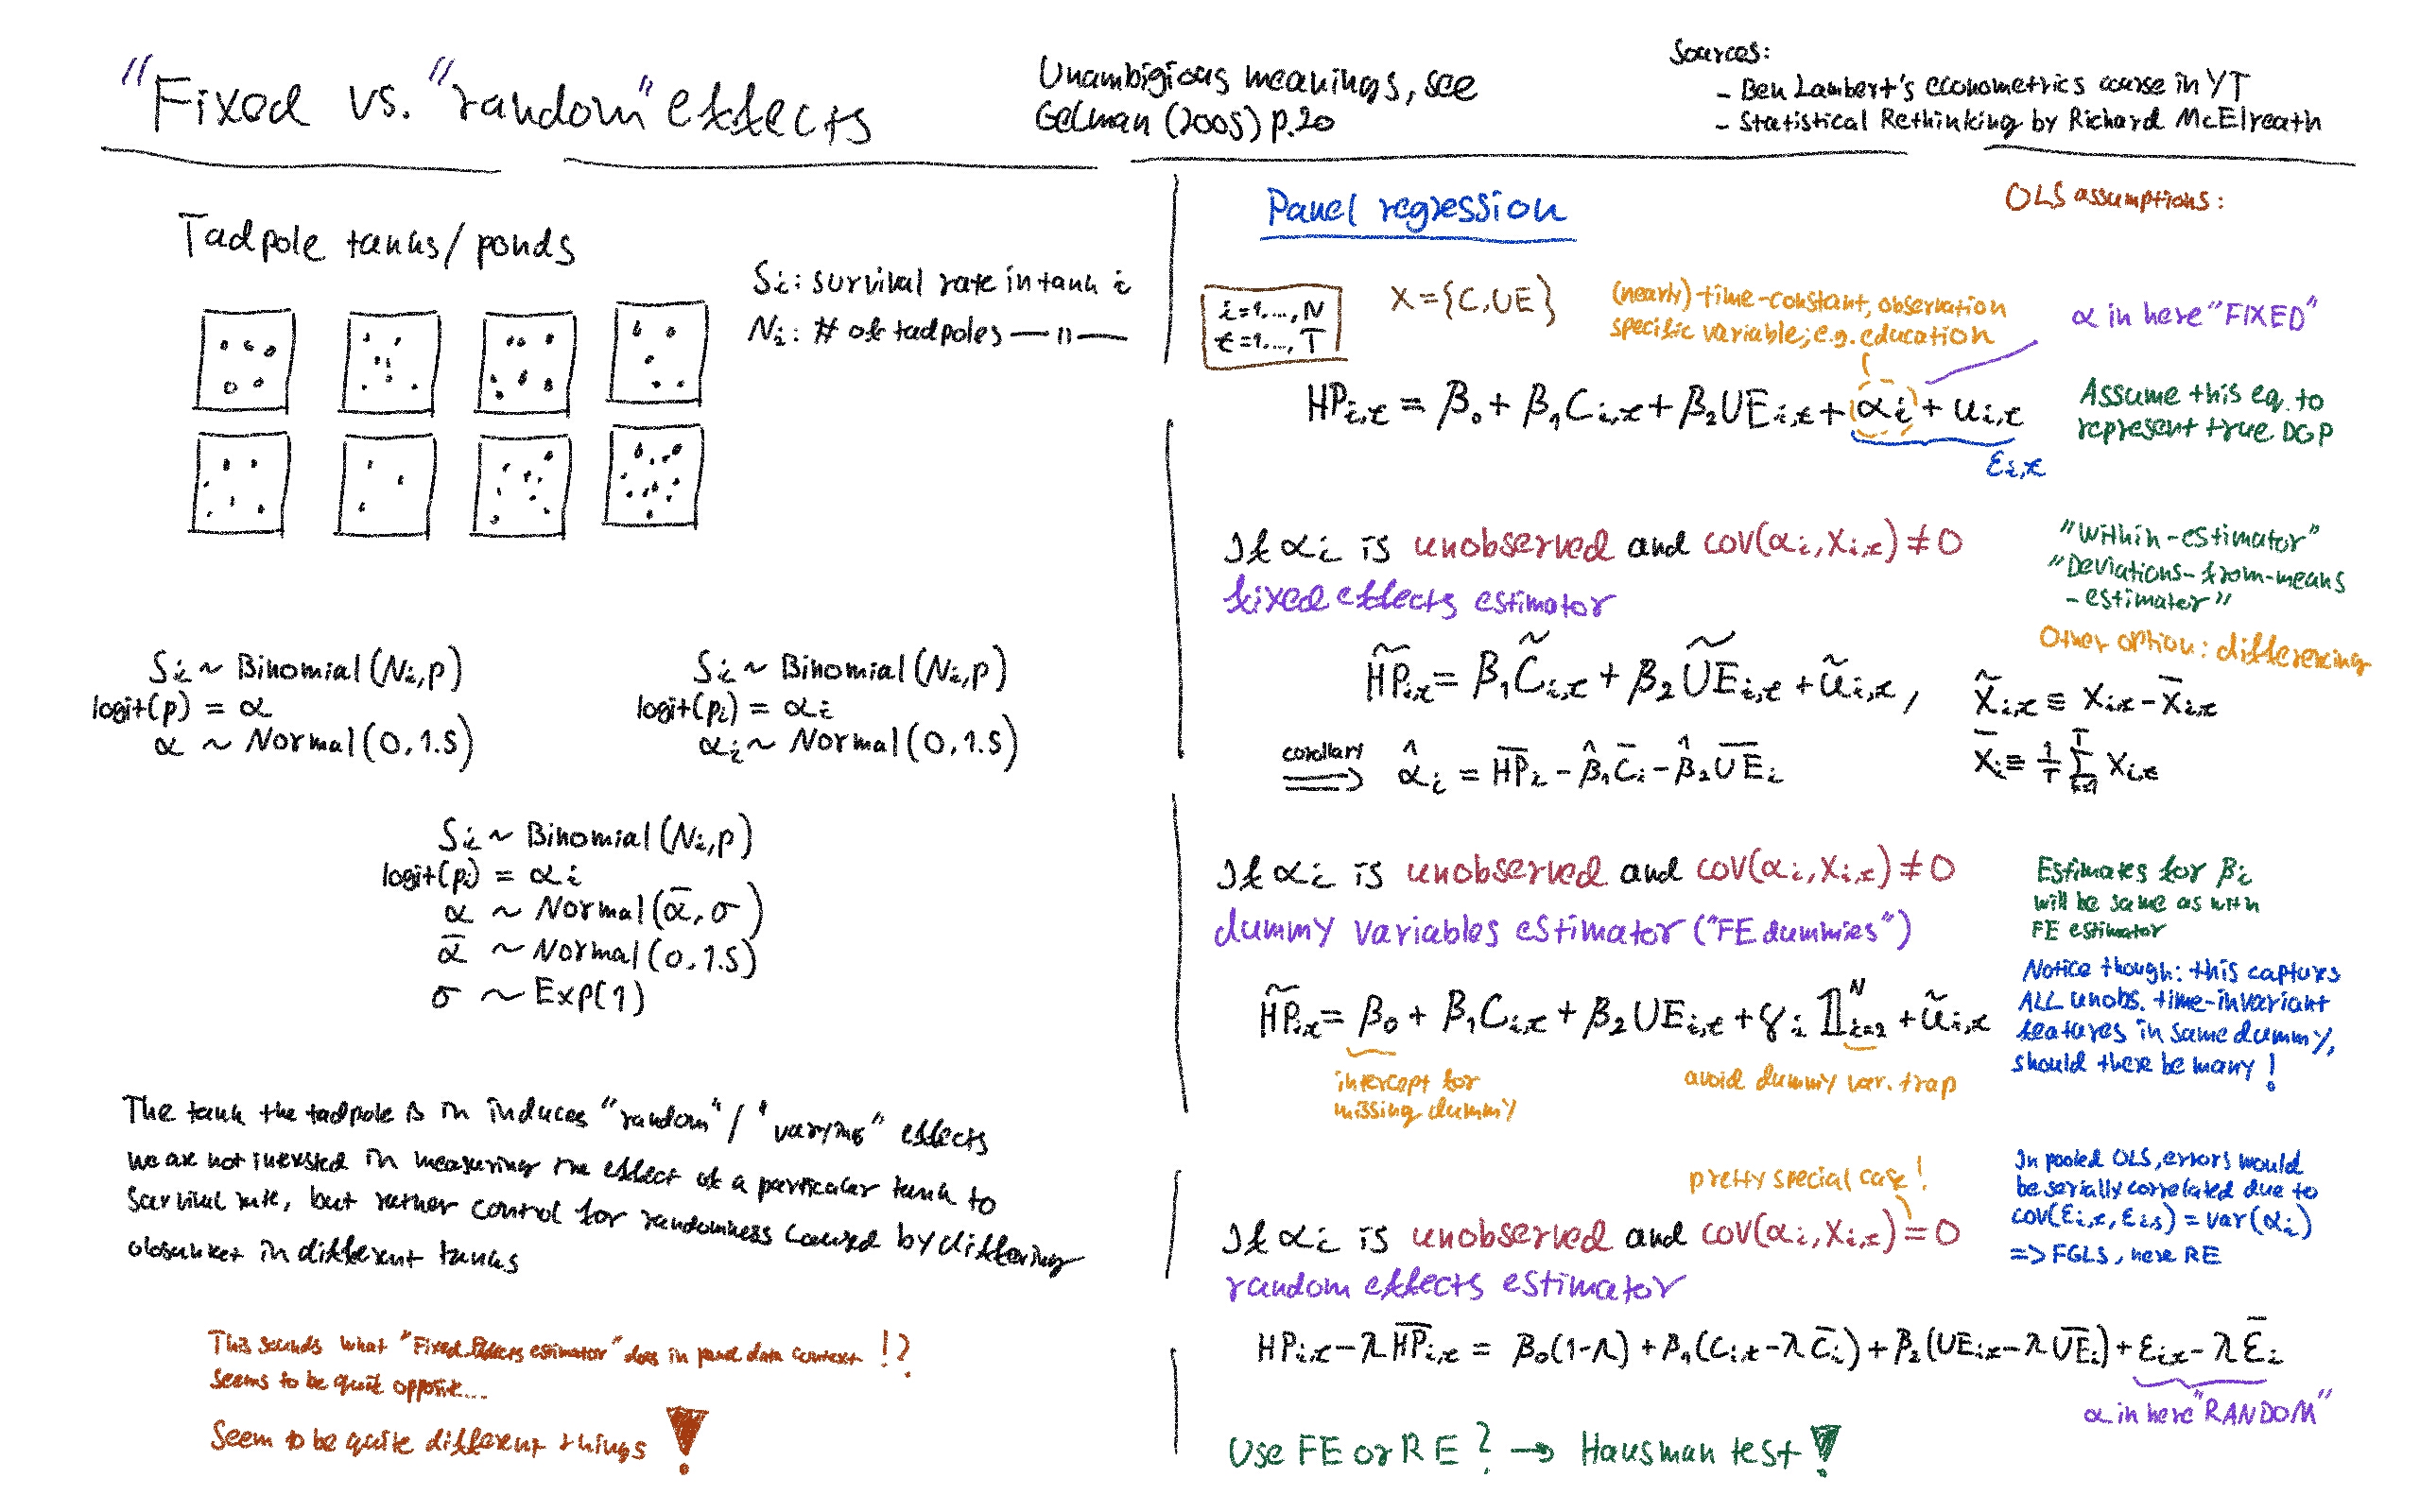 "Fixed vs. "random" effects
Unambigious meanings, see
Gelman (2005) p.20
Sources:
- Ben Lambert's econometrics course in YT
- Statistical Rethinking by Richard McElreath
Tadpole tanks/ponds
Si: survival rate in tank i
Ni: # of tadpoles — 11 —
Si ~ Binomial(Ni,p)
logit(p) = α
α ~ Normal(0,1.5)
Si ~ Binomial(Ni,p)
logit(pi) = αi
αi ~ Normal(0,1.5)
Si ~ Binomial(Ni,p)
logit(pi) = αi
α ~ Normal(ᾱ,σ)
ᾱ ~ Normal(0,1.5)
σ ~ Exp(1)
The tank the tadpole is in induces "random" / "varying" effects
We are not inersted in measuring the effect of a particular tank to
survival rate, but rather control for randomness caused by differing
in different tanks
This sounds what "Fixed effects estimator" does in panel data context!?
Seems to be quite opposite...
Seem to be quite different things!
Panel regression
OLS assumptions:
i=1,...,N
t=1,...,T
X={C,UE}
(nearly)-time-constant, observation
specific variable; e.g. education
α in here "FIXED"
HPi,t = β₀ + β₁Ci,t + β₂UEi,t + αi + ui,t
εi,t
Assume this eq. to
represent true DGP
If αi is unobserved and cov(αi,Xi,t) ≠ 0
fixed effects estimator
"Within-estimator"
"Deviations-from-means
-estimater"
Other option: differencing
H̃Pi,t = β₁C̃i,t + β₂ŨEi,t + ũi,t,
X̃i,t ≡ Xi,t - X̄i,t
corollary ⟹ α̂i = H̄Pi - β̂₁C̄i - β̂₂ŪEi
X̄i ≡ 1/T Σ(t=1..T) Xi,t
If αi is unobserved and cov(αi,Xi,t) ≠ 0
dummy variables estimator ("FE dummies")
Estimates for βi
will be same as with
FE estimator
H̃Pi,t = β₀ + β₁Ci,t + β₂UEi,t + γi 𝟙ᴺi=2 + ũi,t
intercept for
missing dummy
avoid dummy var. trap
Notice though: this captures
ALL unobs. time-invariant
features in same dummy,
should there be many!
pretty special case!
If αi is unobserved and cov(αi,Xi,t) = 0
random effects estimator
In pooled OLS, errors would
be serially correlated due to
cov(εi,t, εi,s) = var(αi)
=> FGLS, here RE
HPi,t - λH̄Pi,t = β₀(1-λ) + β₁(Ci,t - λC̄i) + β₂(UEi,t - λŪEi) + εi,t - λε̄i
α in here "RANDOM"
Use FE or RE? → Hausman test!